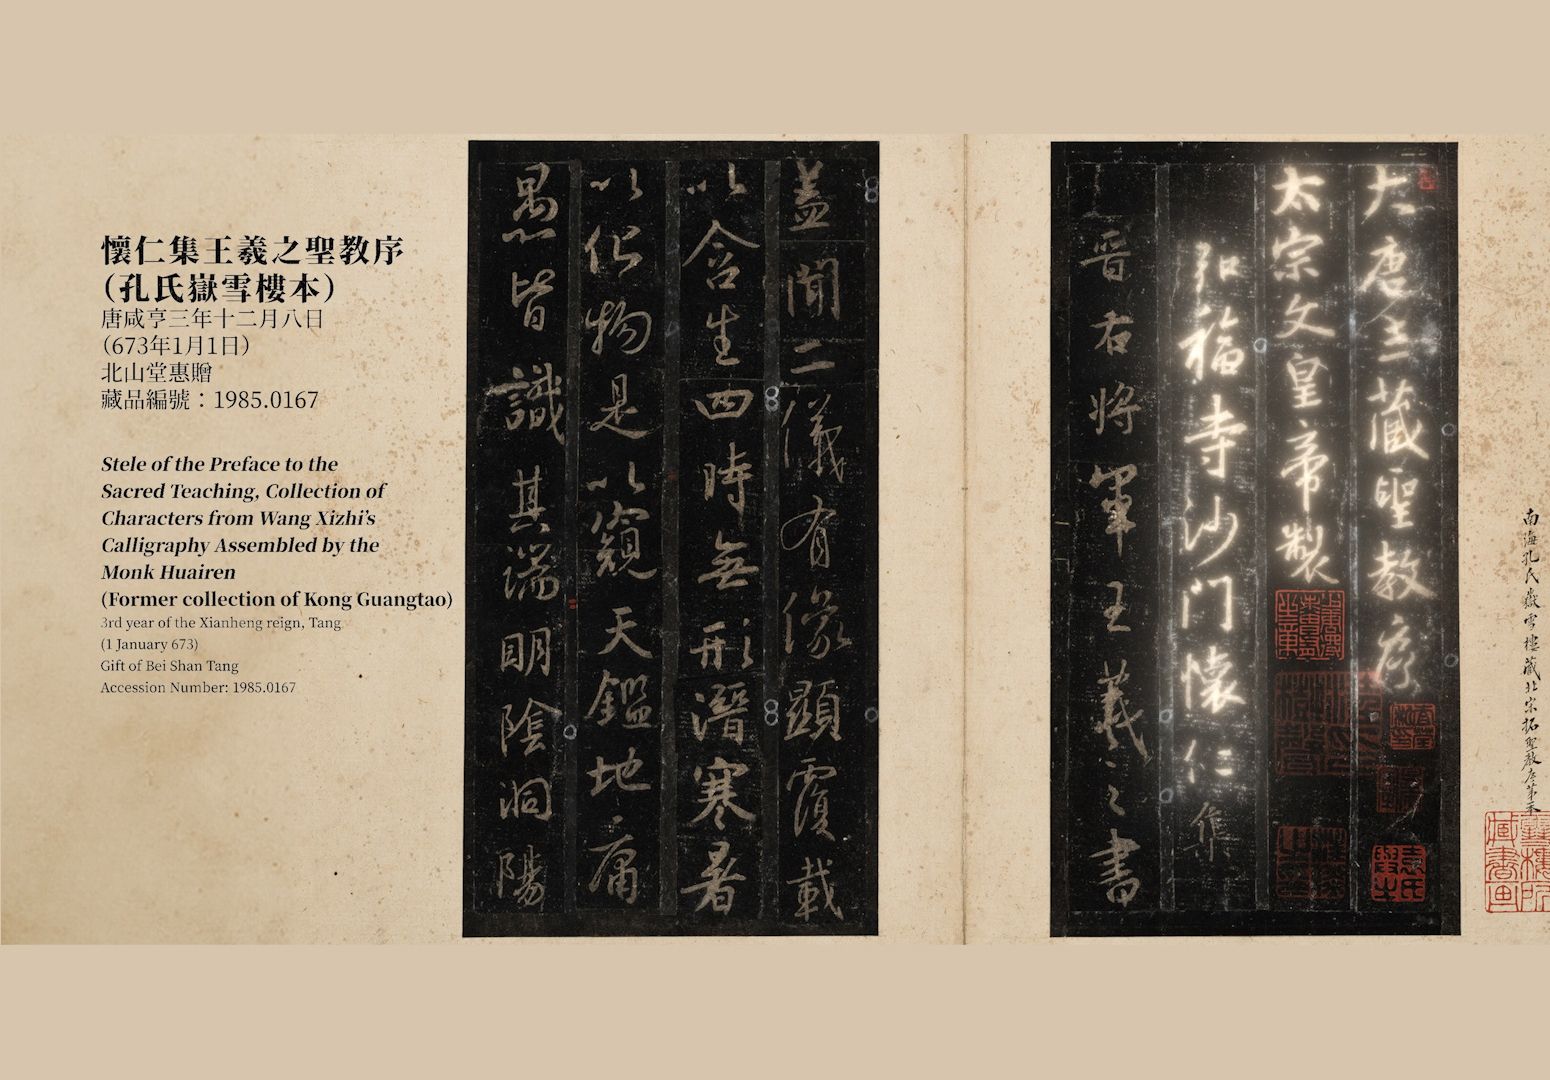 懷仁集王羲之聖教序
（孔氏嶽雪樓本）
唐咸亨三年十二月八日
（673年1月1日）
北山堂惠贈
藏品編號：1985.0167
Stele of the Preface to the
Sacred Teaching, Collection of
Characters from Wang Xizhi’s
Calligraphy Assembled by the
Monk Huairen
(Former collection of Kong Guangtao)
3rd year of the Xianheng reign, Tang
(1 January 673)
Gift of Bei Shan Tang
Accession Number: 1985.0167
南海孔氏嶽雪樓藏北宋拓聖教序第
大唐三藏聖教序
太宗文皇帝製
弘福寺沙門懷仁集
晉右將軍王羲之書
蓋聞二儀有像顯覆載
以含生四時無形潛寒暑
以化物是以窺天鑑地庸
愚皆識其端明陰洞陽